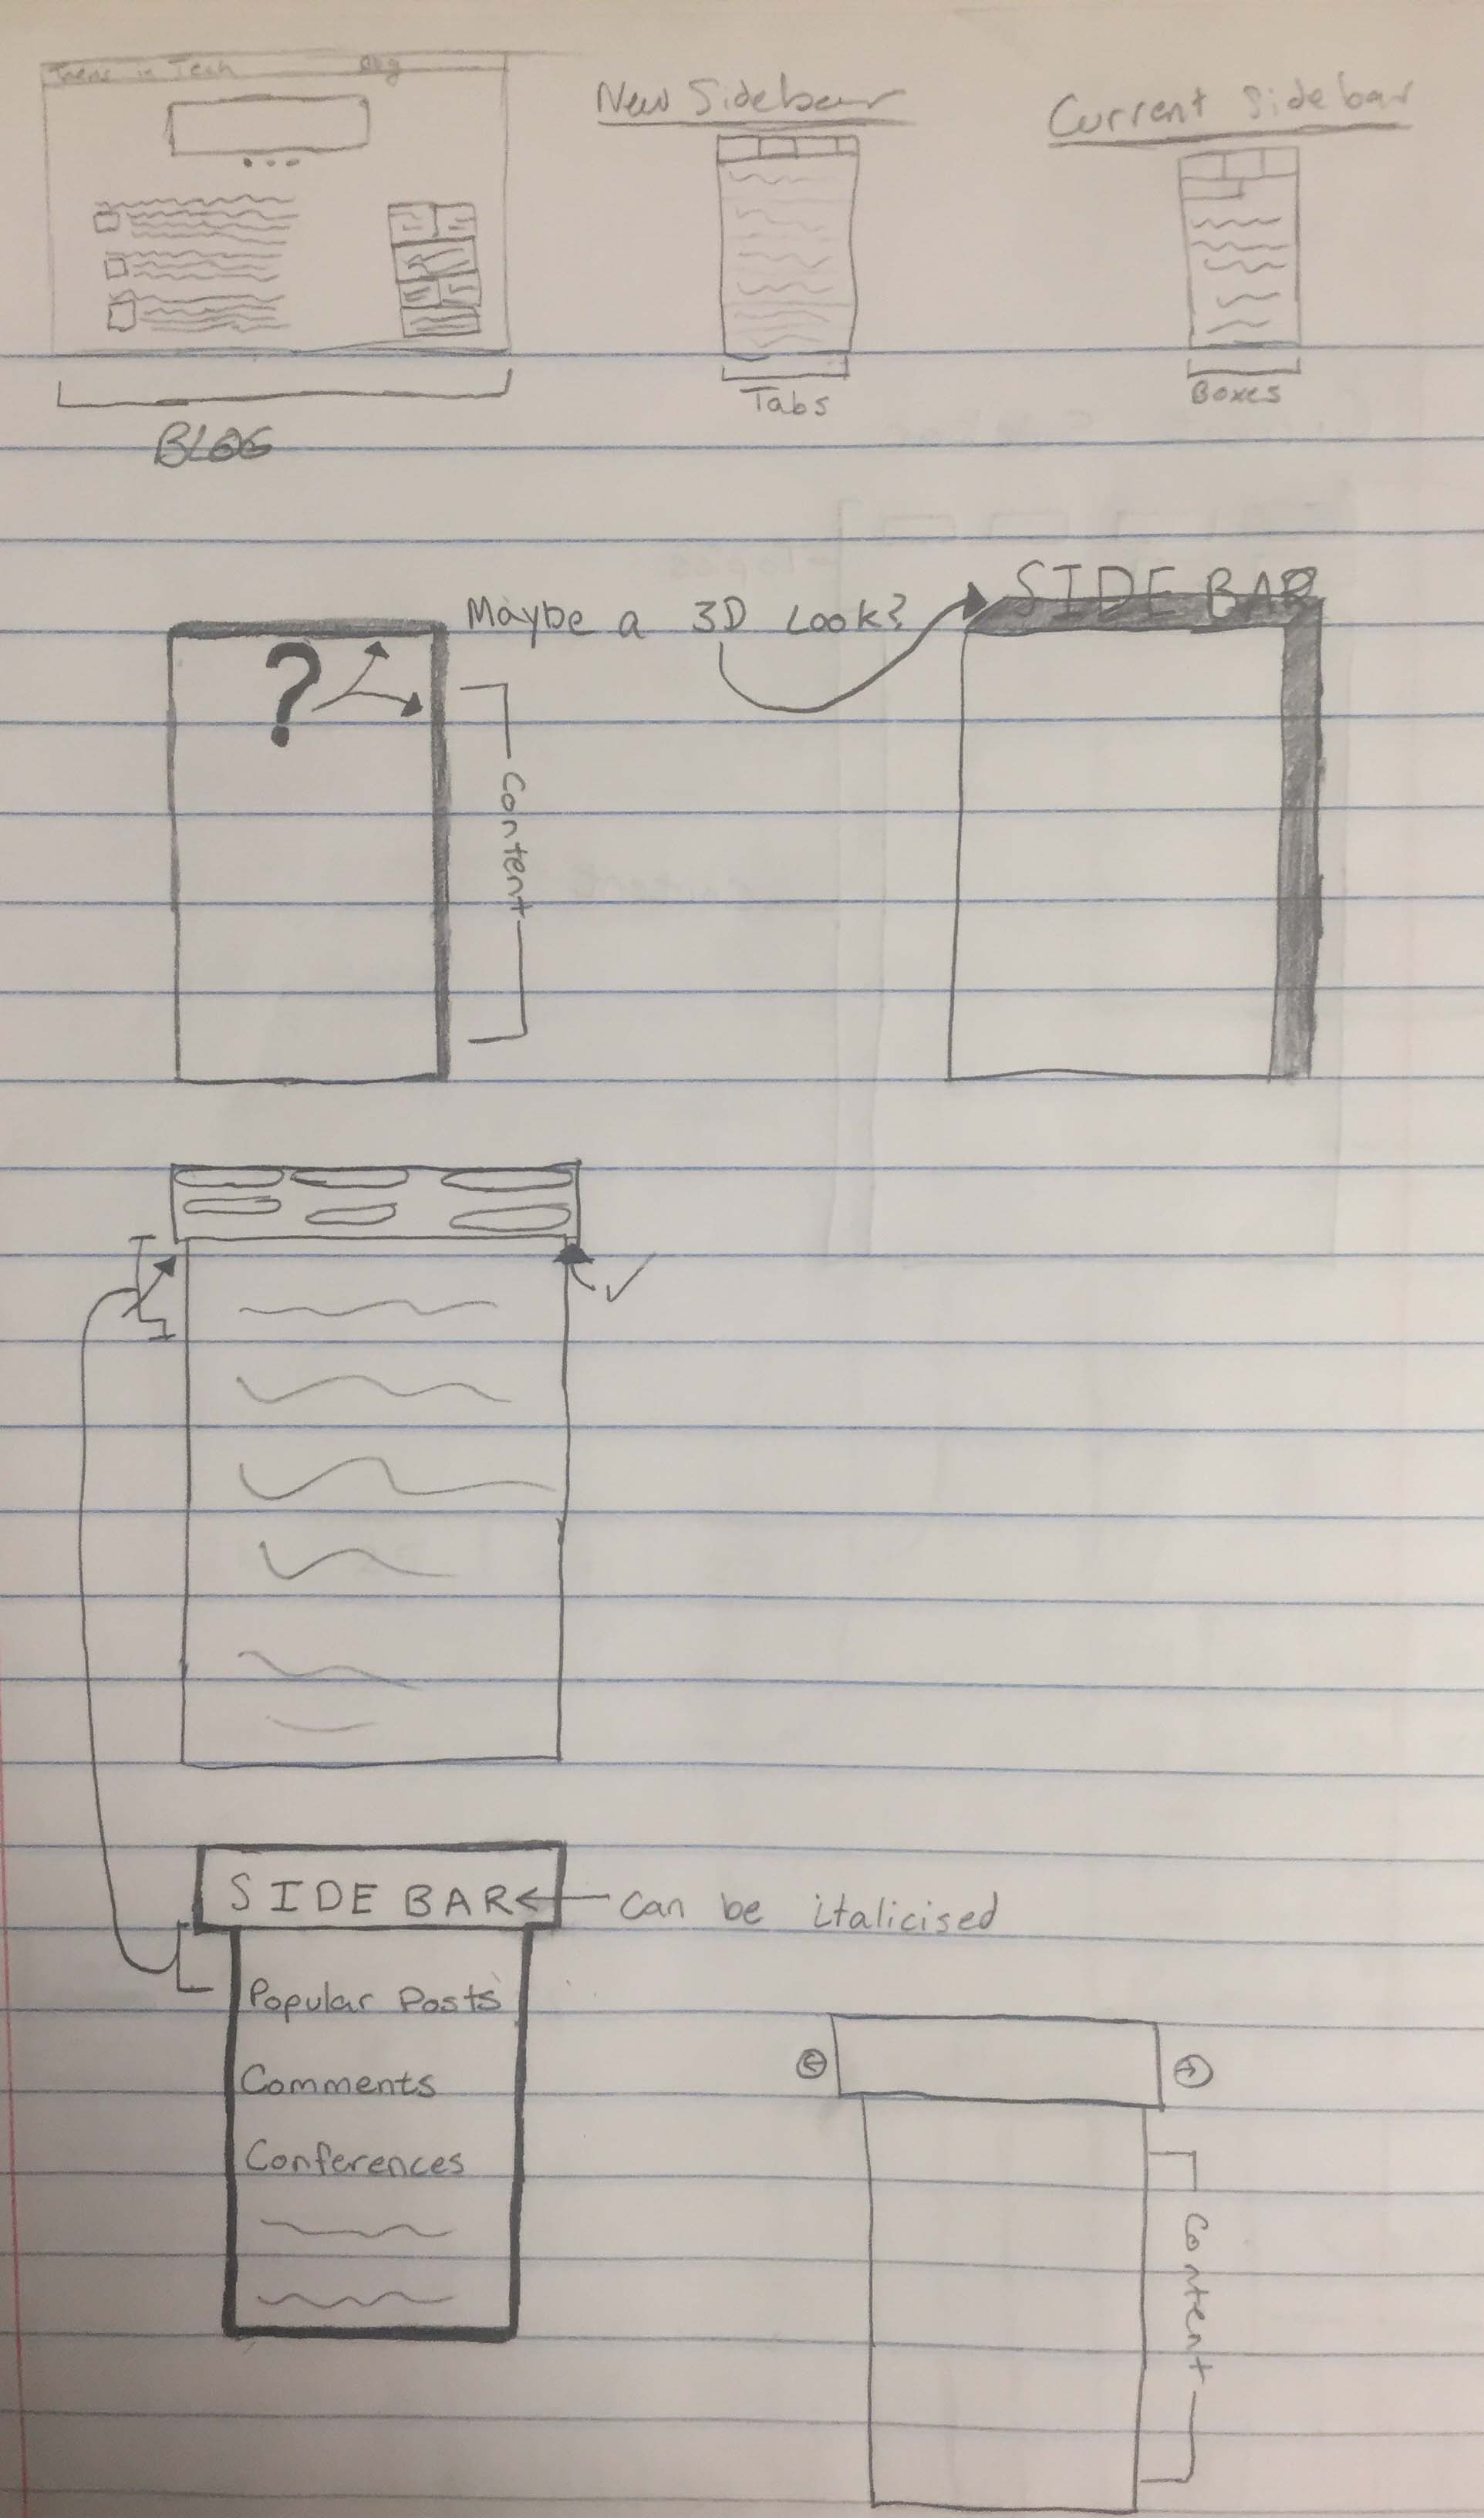 in Tech
New Sidebar
Current Sidebar
Tabs
Boxes
BLOG
Maybe a 3D Look?
SIDE BAR
Content
SIDE BAR
can be italicised
Popular Posts
Comments
Conferences
Content